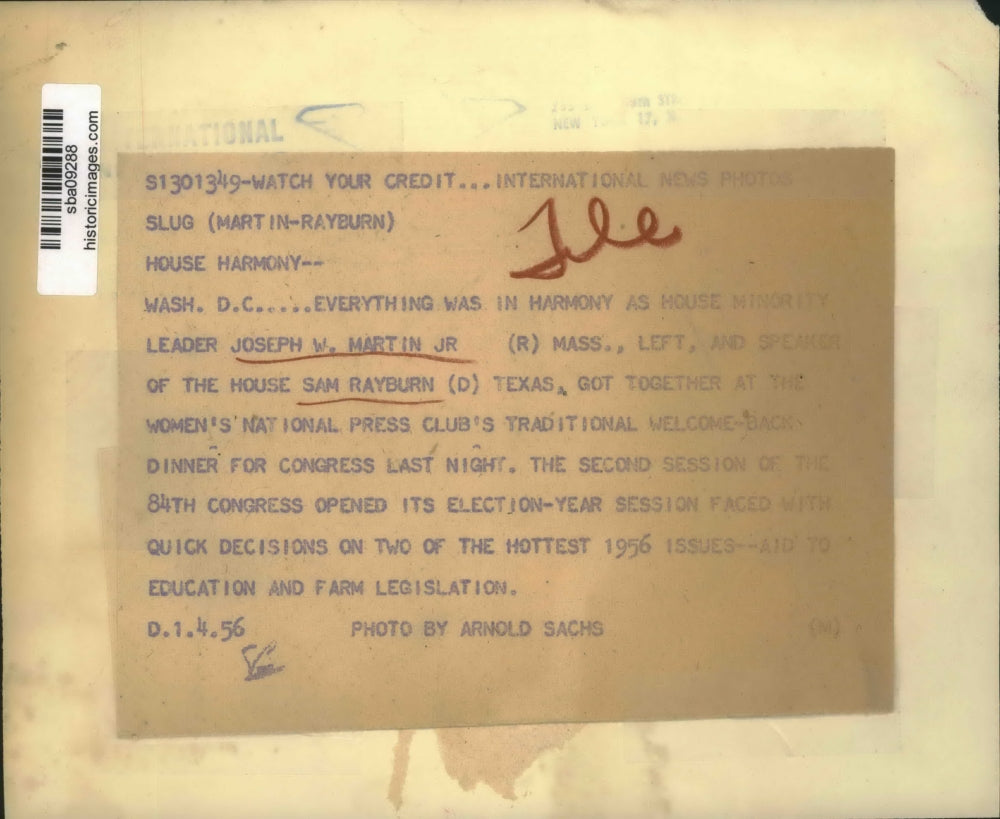 sba09288
historicimages.com
NATIONAL
NEW 17, N.
S1301349-WATCH YOUR CREDIT...INTERNATIONAL NEWS PHOTOS
SLUG (MARTIN-RAYBURN)
HOUSE HARMONY--
WASH. D.C.....EVERYTHING WAS IN HARMONY AS HOUSE MINORITY
LEADER JOSEPH W. MARTIN JR (R) MASS., LEFT, AND SPEAKER
OF THE HOUSE SAM RAYBURN (D) TEXAS, GOT TOGETHER AT THE
WOMEN'S NATIONAL PRESS CLUB'S TRADITIONAL WELCOME-BACK
DINNER FOR CONGRESS LAST NIGHT. THE SECOND SESSION OF THE
84TH CONGRESS OPENED ITS ELECTION-YEAR SESSION FACED WITH
QUICK DECISIONS ON TWO OF THE HOTTEST 1956 ISSUES--AID TO
EDUCATION AND FARM LEGISLATION.
D.1.4.56 PHOTO BY ARNOLD SACHS (M)